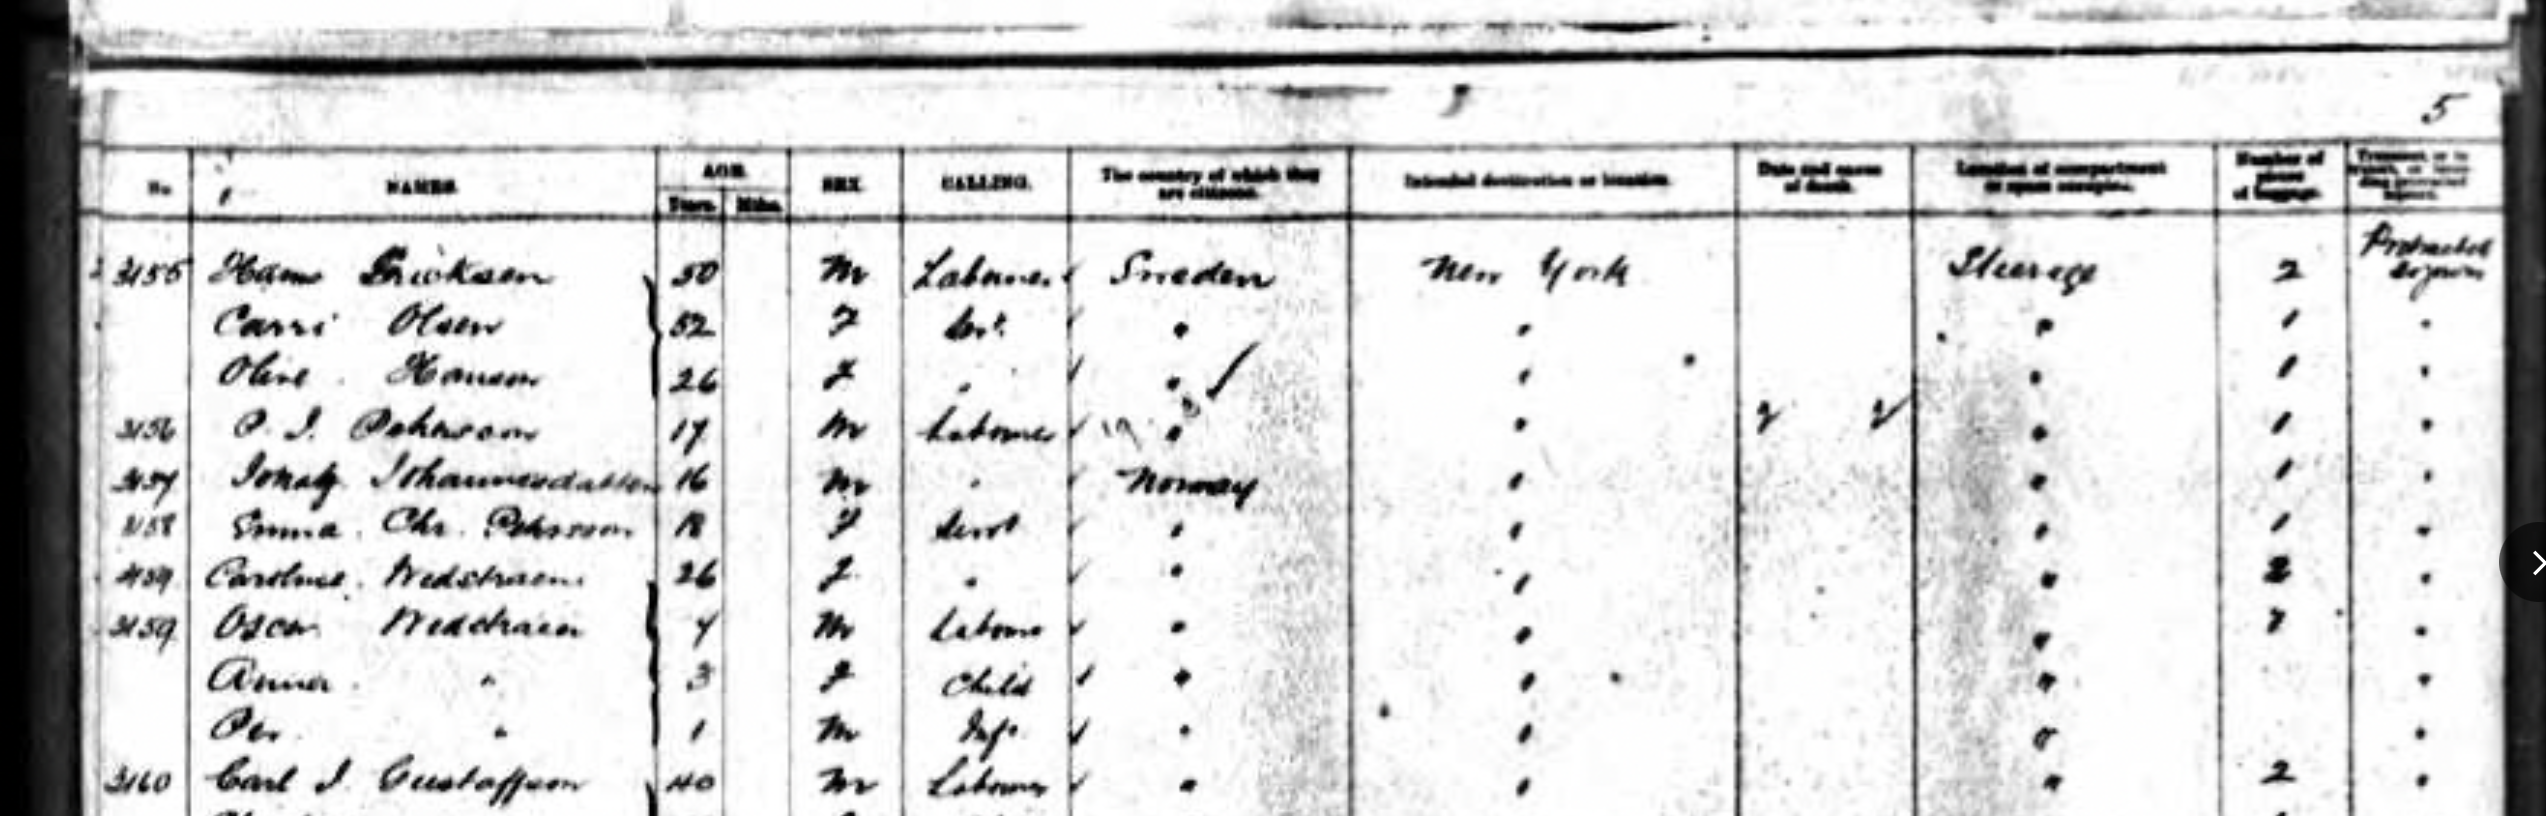 5
No. NAMES. AGE. Years. Mths. SEX. CALLING. The country of which they are citizens. Intended destination or location. Date and cause of death. Location of compartment or space occupied. Number of pieces of baggage.
3155 Hans Ericksen 50 M Labourer Sweden New York Steerage 2 Protracted sojourn
Carri Olsen 52 F " " " 1 "
Oline Hanson 26 F " " " " 1 "
3156 P. J. Pehrsson 17 M Labourer " " " 1 "
3157 Johannesdatter 16 M " Norway " " 1 "
3158 Emma Chr. Pehrsson 18 F Servt " " " 1 "
Caroline 26 F " " " " 2 "
3159 Oscar M Labourer " " " "
Anna " 3 F Child " " " "
Per " 1 M Inft " " " "
3160 Carl J. Gustaffson 40 M Labourer " " " 2 "